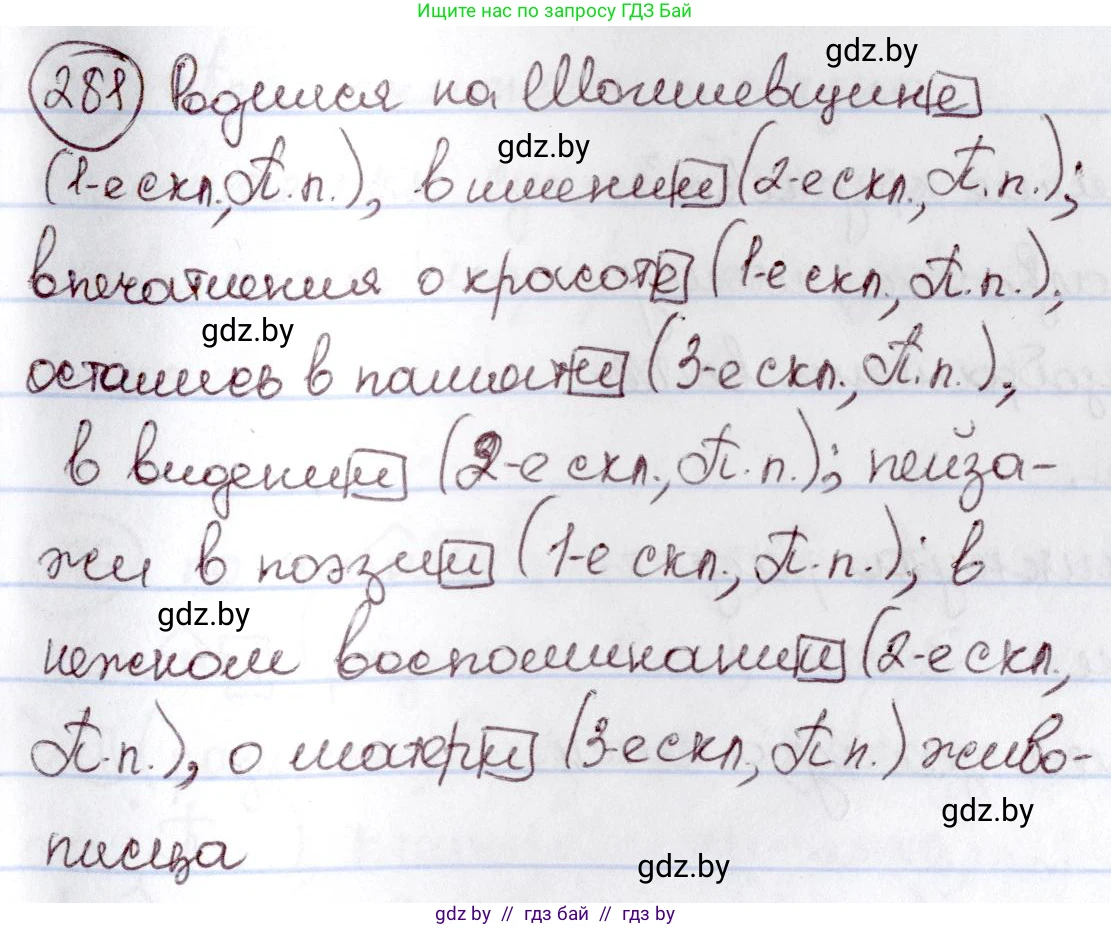 Ищите нас по запросу ГДЗ Бай
gdz.by
281 Родился на Могилевщине
gdz.by
(1-е скл., П.п.), в имении (2-е скл., П.п.);
впечатления о красоте (1-е скл., П.п.);
gdz.by
остались в памяти (3-е скл., П.п.),
в видении (2-е скл., П.п.); пейза-
жи в поэзии (1-е скл., П.п.); в
gdz.by
нежном воспоминании (2-е скл.,
П.п.), о матери (3-е скл., П.п.) живо-
gdz.by
писца
gdz.by
gdz by // гдз бай // гдз by